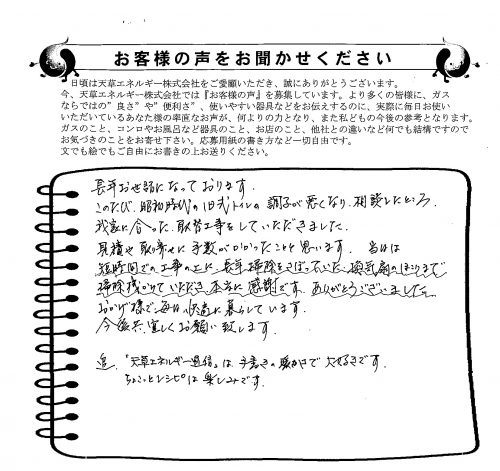 お客様の声をお聞かせください
日頃は天草エネルギー株式会社をご愛顧いただき、誠にありがとうございます。
今、天草エネルギー株式会社では『お客様の声』を募集しています。より多くの皆様に、ガス
ならではの”良さ”や”便利さ”、使いやすい器具などをお伝えするのに、実際に毎日お使い
いただいているあなた様の率直なお声が、何よりの力となり、また私どもの今後の参考となります。
ガスのこと、コンロやお風呂など器具のこと、お店のこと、他社との違いなど何でも結構ですので
お気づきのことをお寄せ下さい。応募用紙の書き方など一切自由です。
文でも絵でもご自由にお書きの上お送りください。
長年お世話になっております。
このたび、昭和時代の旧式トイレの調子が悪くなり、相談したところ
我家に合った取替工事をしていただきました。
見積や取寄せに手数がかかったことと思います。当日は
短時間での工事の上に、長年掃除をさぼっていた換気扇のほこりまで
掃除機かけていただき、本当に感謝です。ありがとうございました。
おかげ様で毎日快適に暮らしています。
今後共、宜しくお願い致します。
追.「天草エネルギー通信」は手書きの暖かさで大好きです。
ちょこっとレシピは楽しみです。